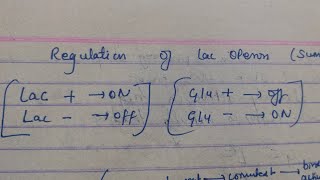 Regulation of Lac Operon (Sum
Lac + → ON Glu + → off
Lac - → Off Glu - → ON
→ convert → bind